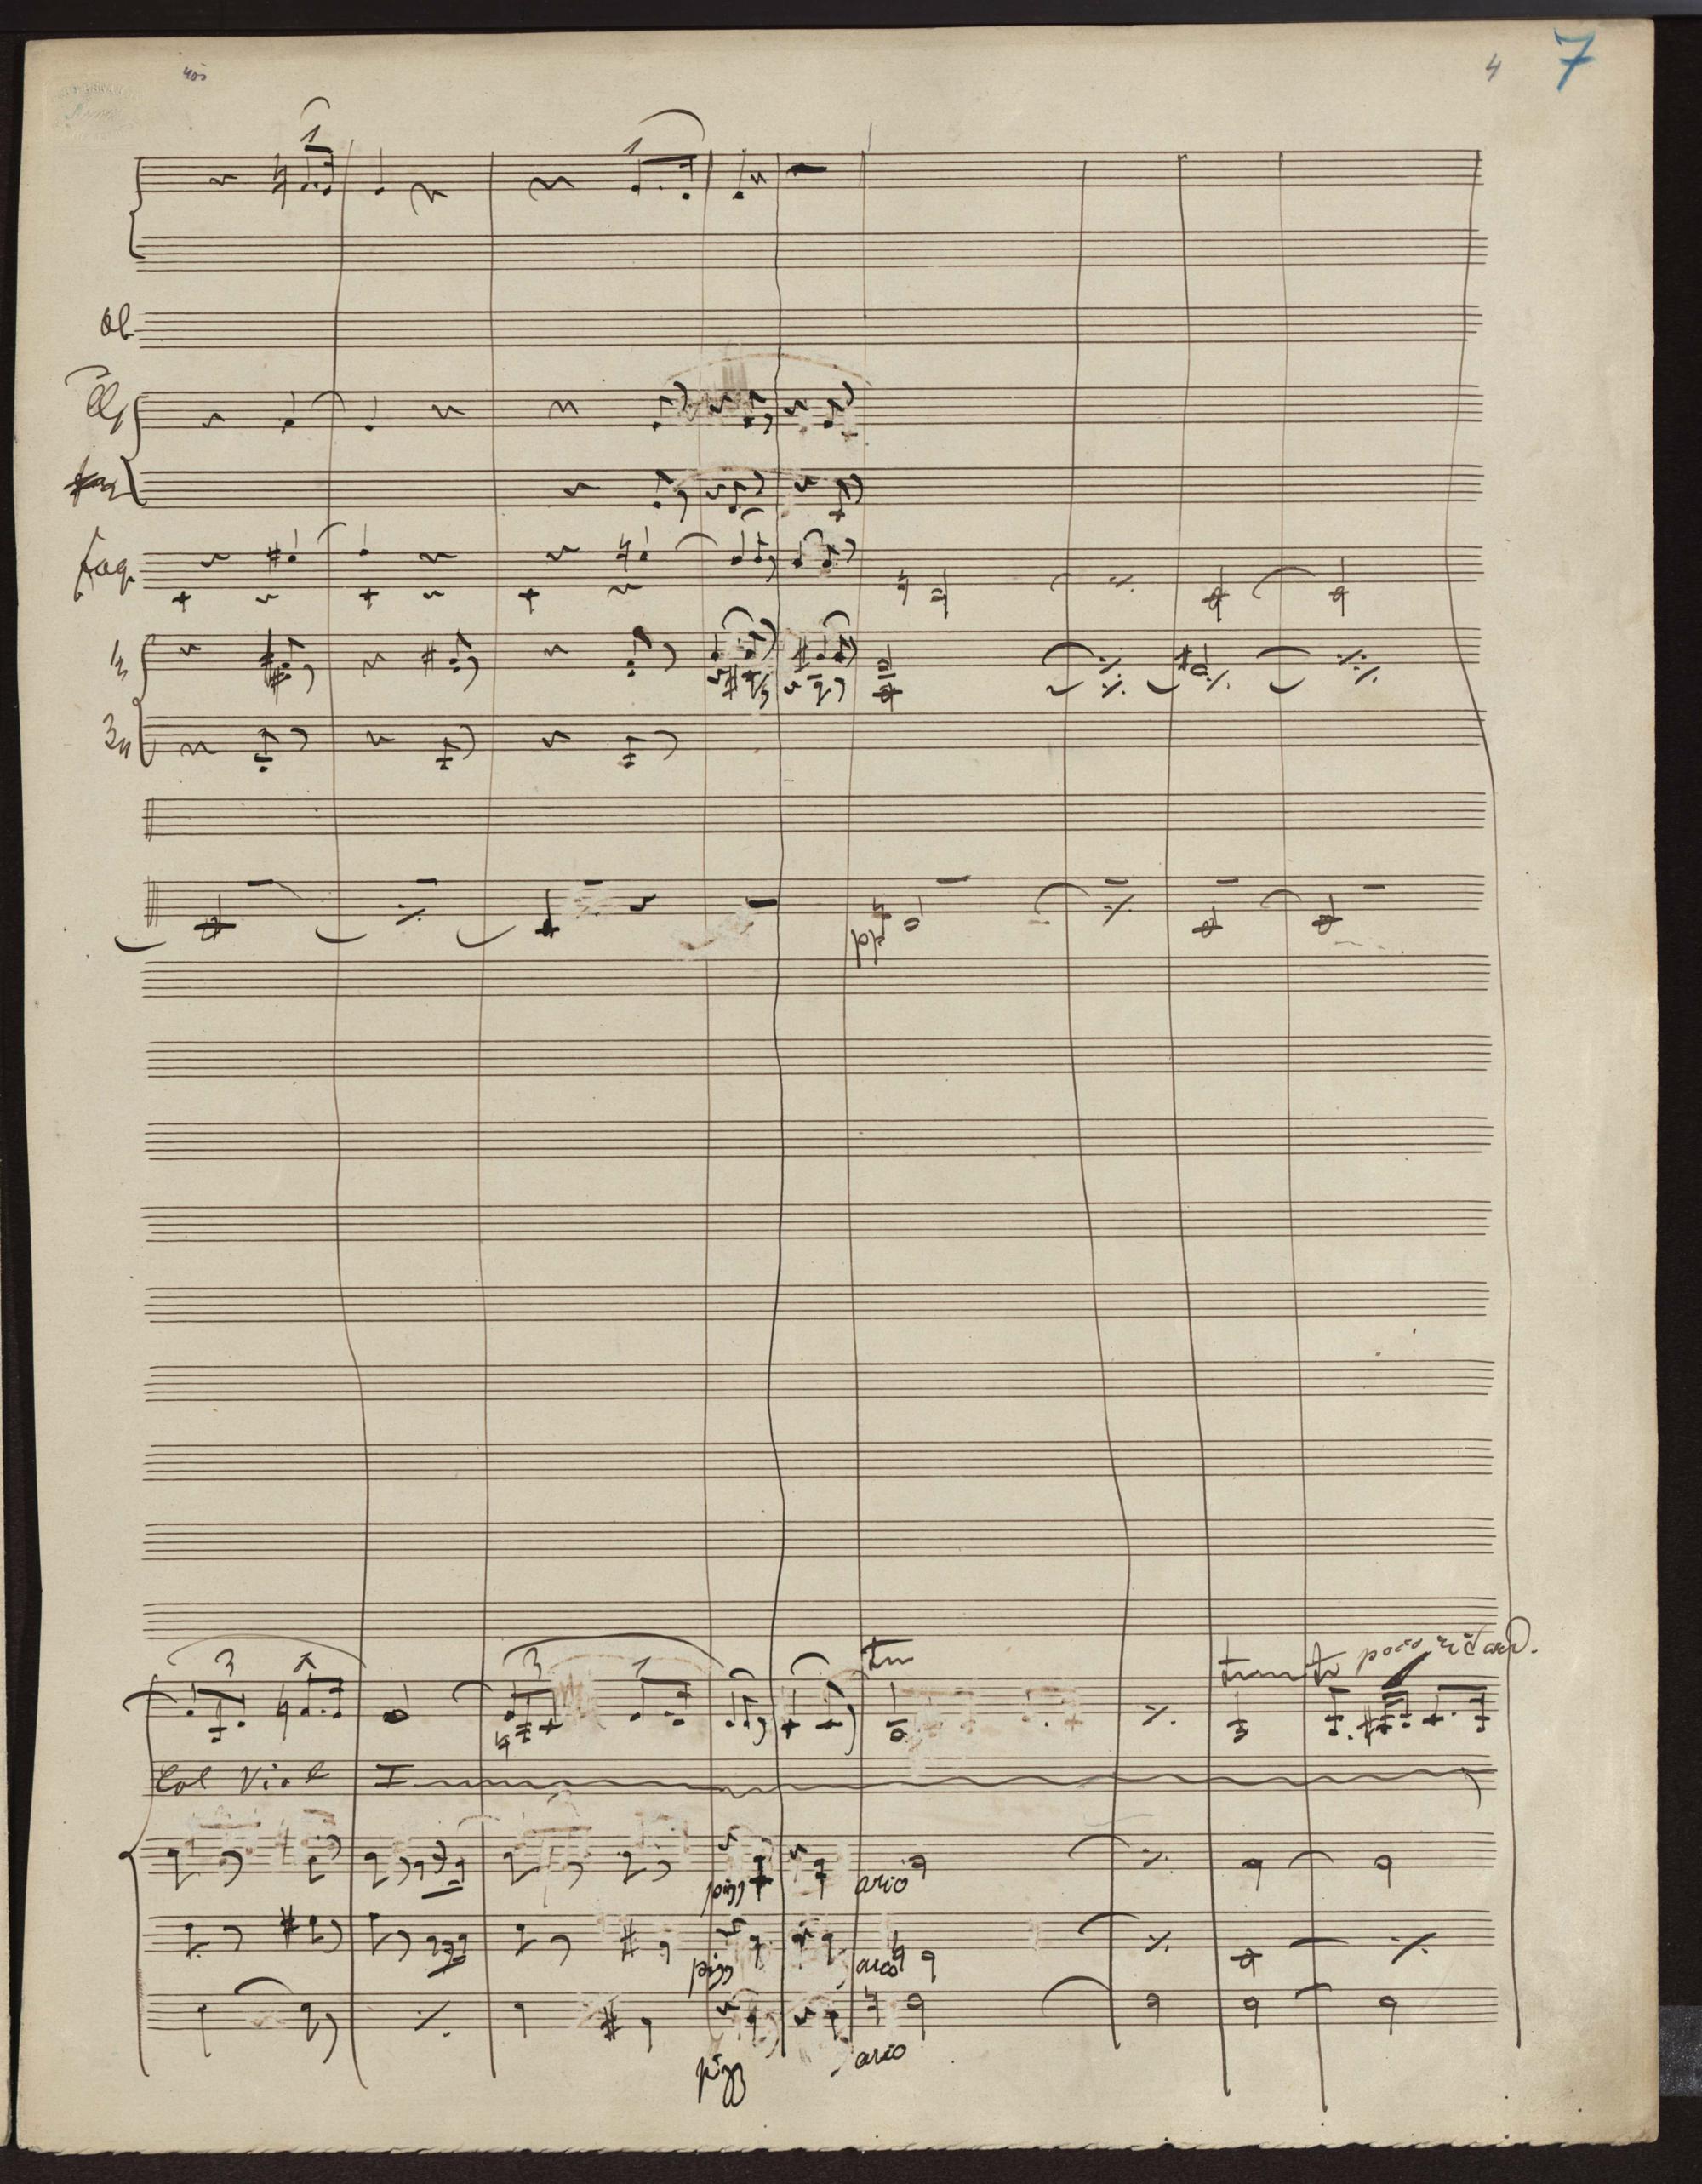 4 7
Ob
Fag.
1
3
pp
3 3 tr
tr tr poco ritard.
Col Viol I
pizz arco
pizz arco
pizz arco